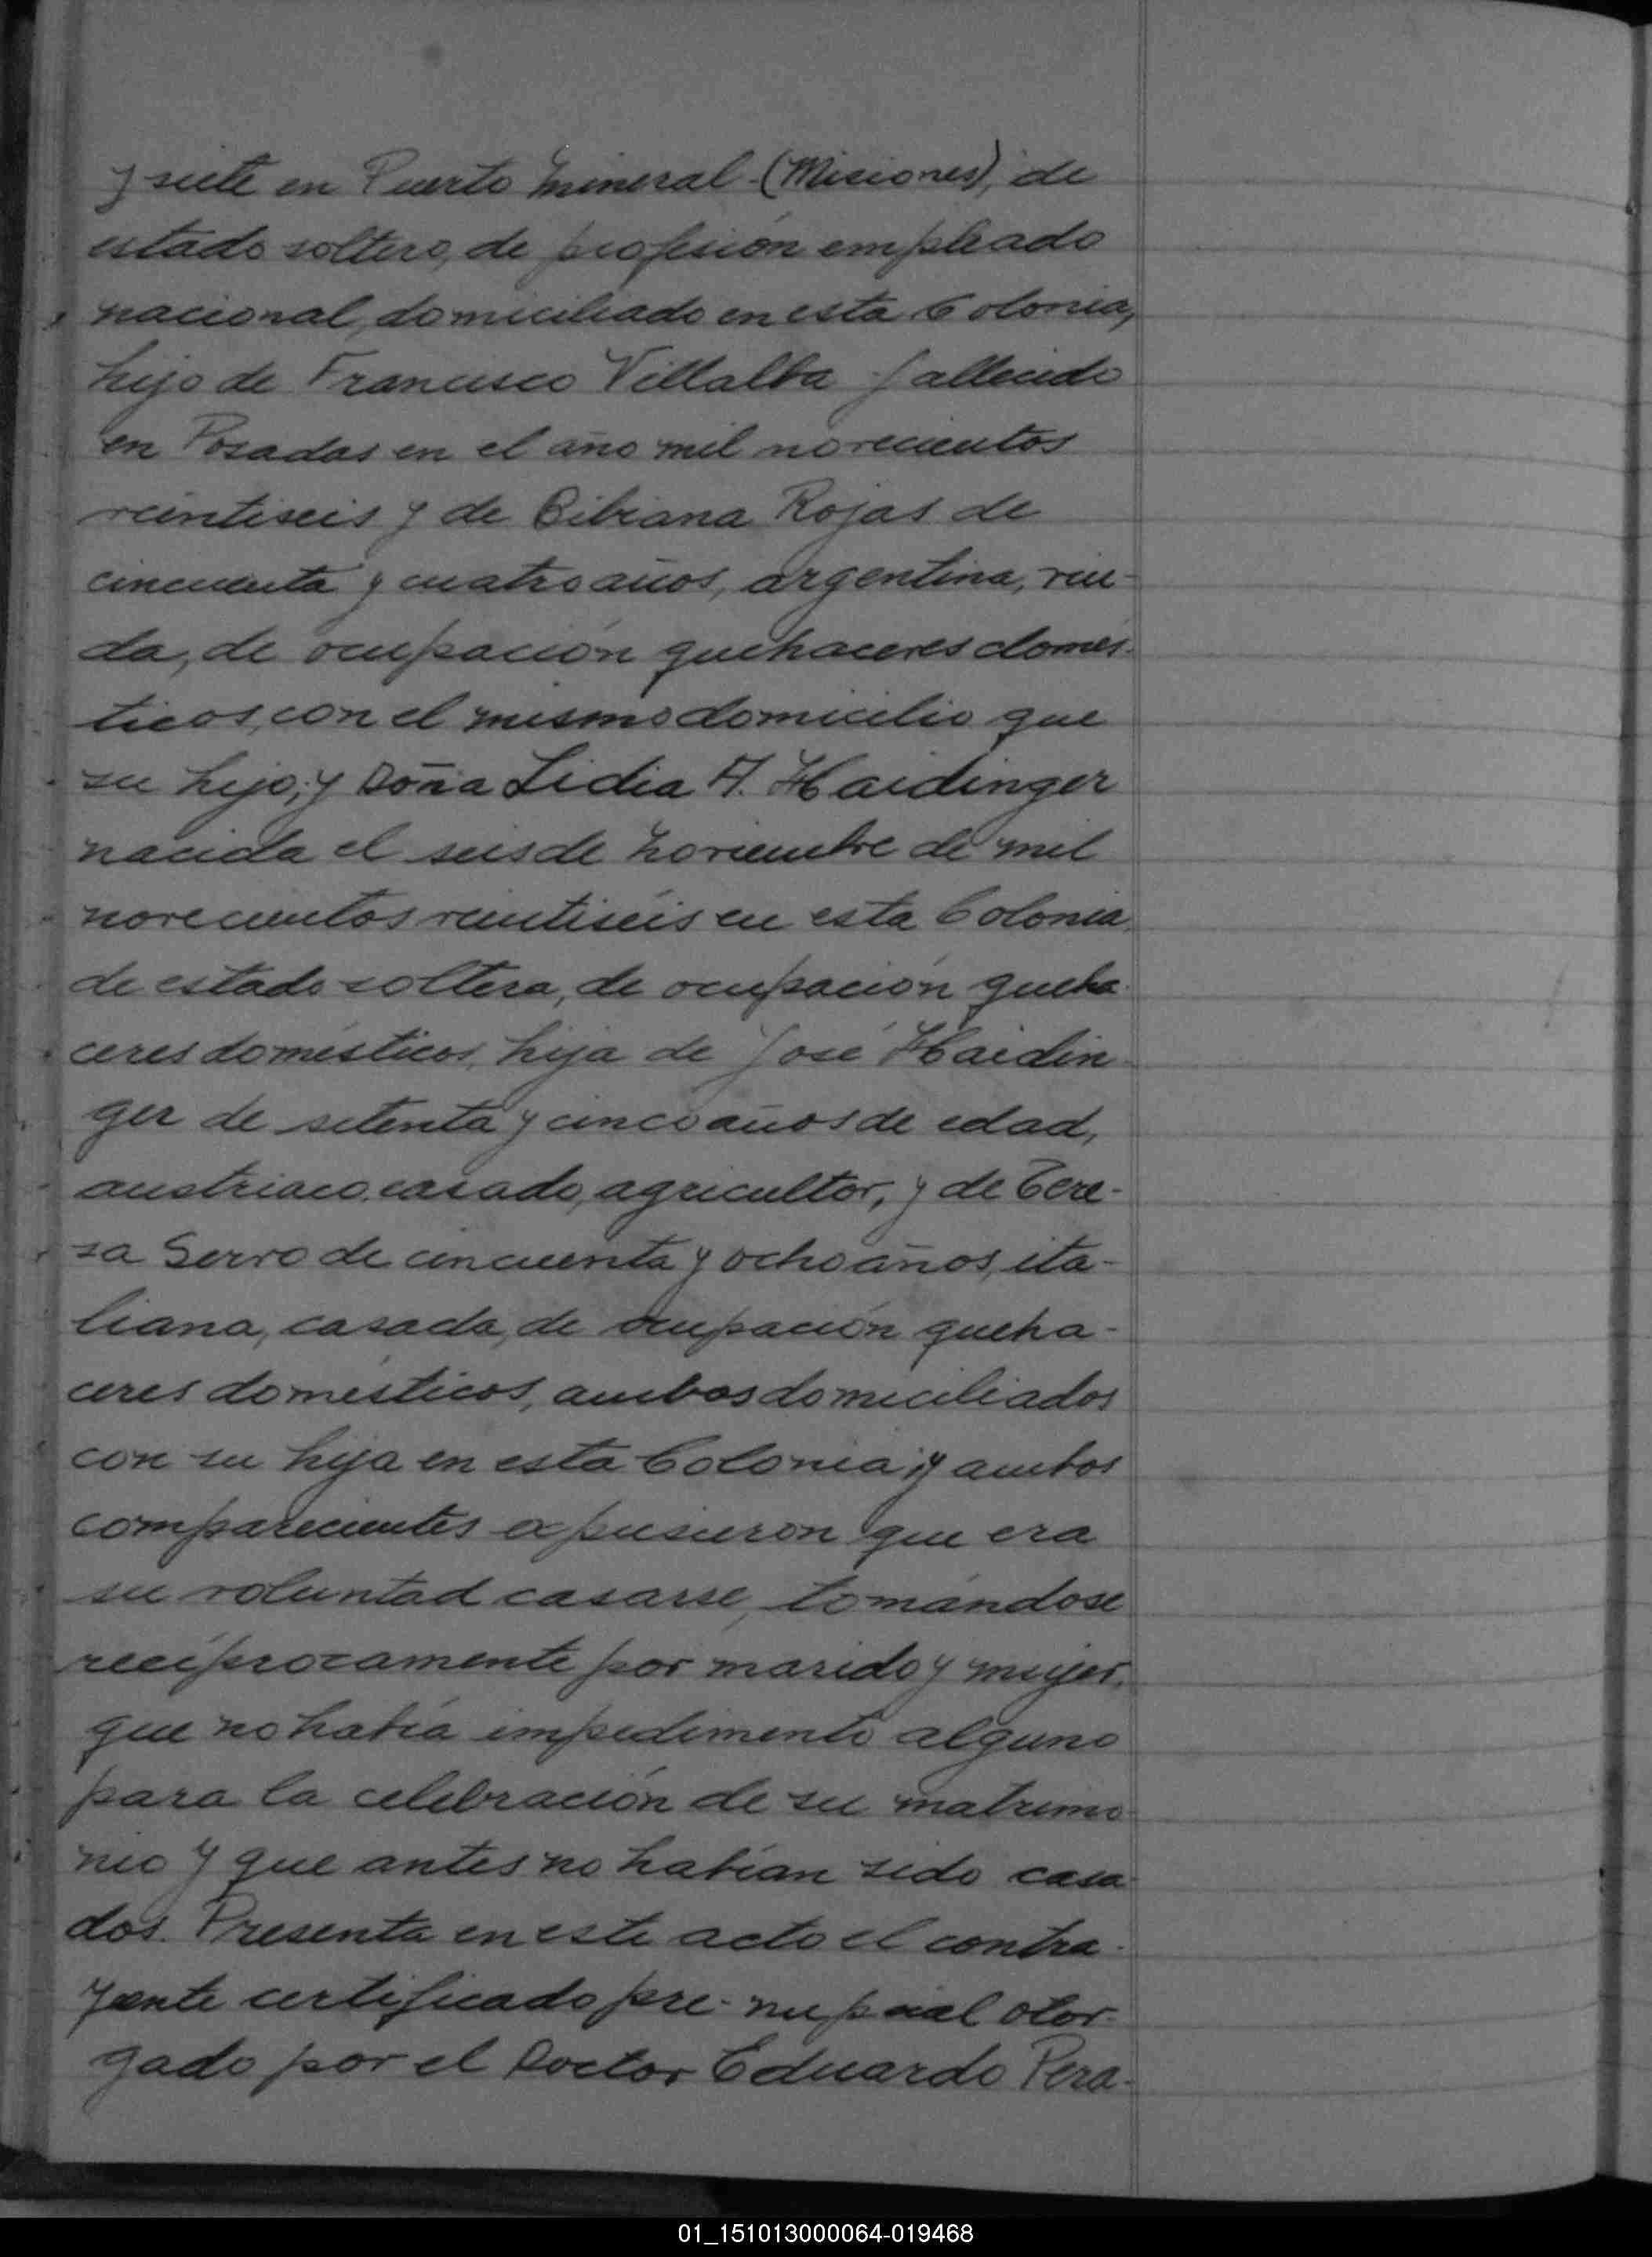 y siete en Puerto Mineral (Misiones), de
estado soltero, de profesión empleado
nacional, domiciliado en esta Colonia,
hijo de Francisco Villalba fallecido
en Posadas en el año mil novecientos
veintiseis y de Bibiana Rojas de
cincuenta y cuatro años, argentina, viu-
da, de ocupación quehaceres domés-
ticos, con el mismo domicilio que
su hijo; y Doña Lidia A. Haidinger
nacida el seis de Noviembre de mil
novecientos veintiséis en esta Colonia,
de estado soltera, de ocupación queha-
ceres domésticos, hija de José Haidin-
ger de setenta y cinco años de edad,
austriaco, casado, agricultor, y de Tere-
sa Serro de cincuenta y ocho años, ita-
liana, casada, de ocupación queha-
ceres domésticos, ambos domiciliados
con su hija en esta Colonia; y ambos
comparecientes expusieron que era
su voluntad casarse, tomándose
recíprocamente por marido y mujer,
que no había impedimento alguno
para la celebración de su matrimo-
nio y que antes no habían sido casa-
dos. Presenta en este acto el contra-
yente certificado pre-nupcial otor-
gado por el Doctor Eduardo Pera-
01_151013000064-019468